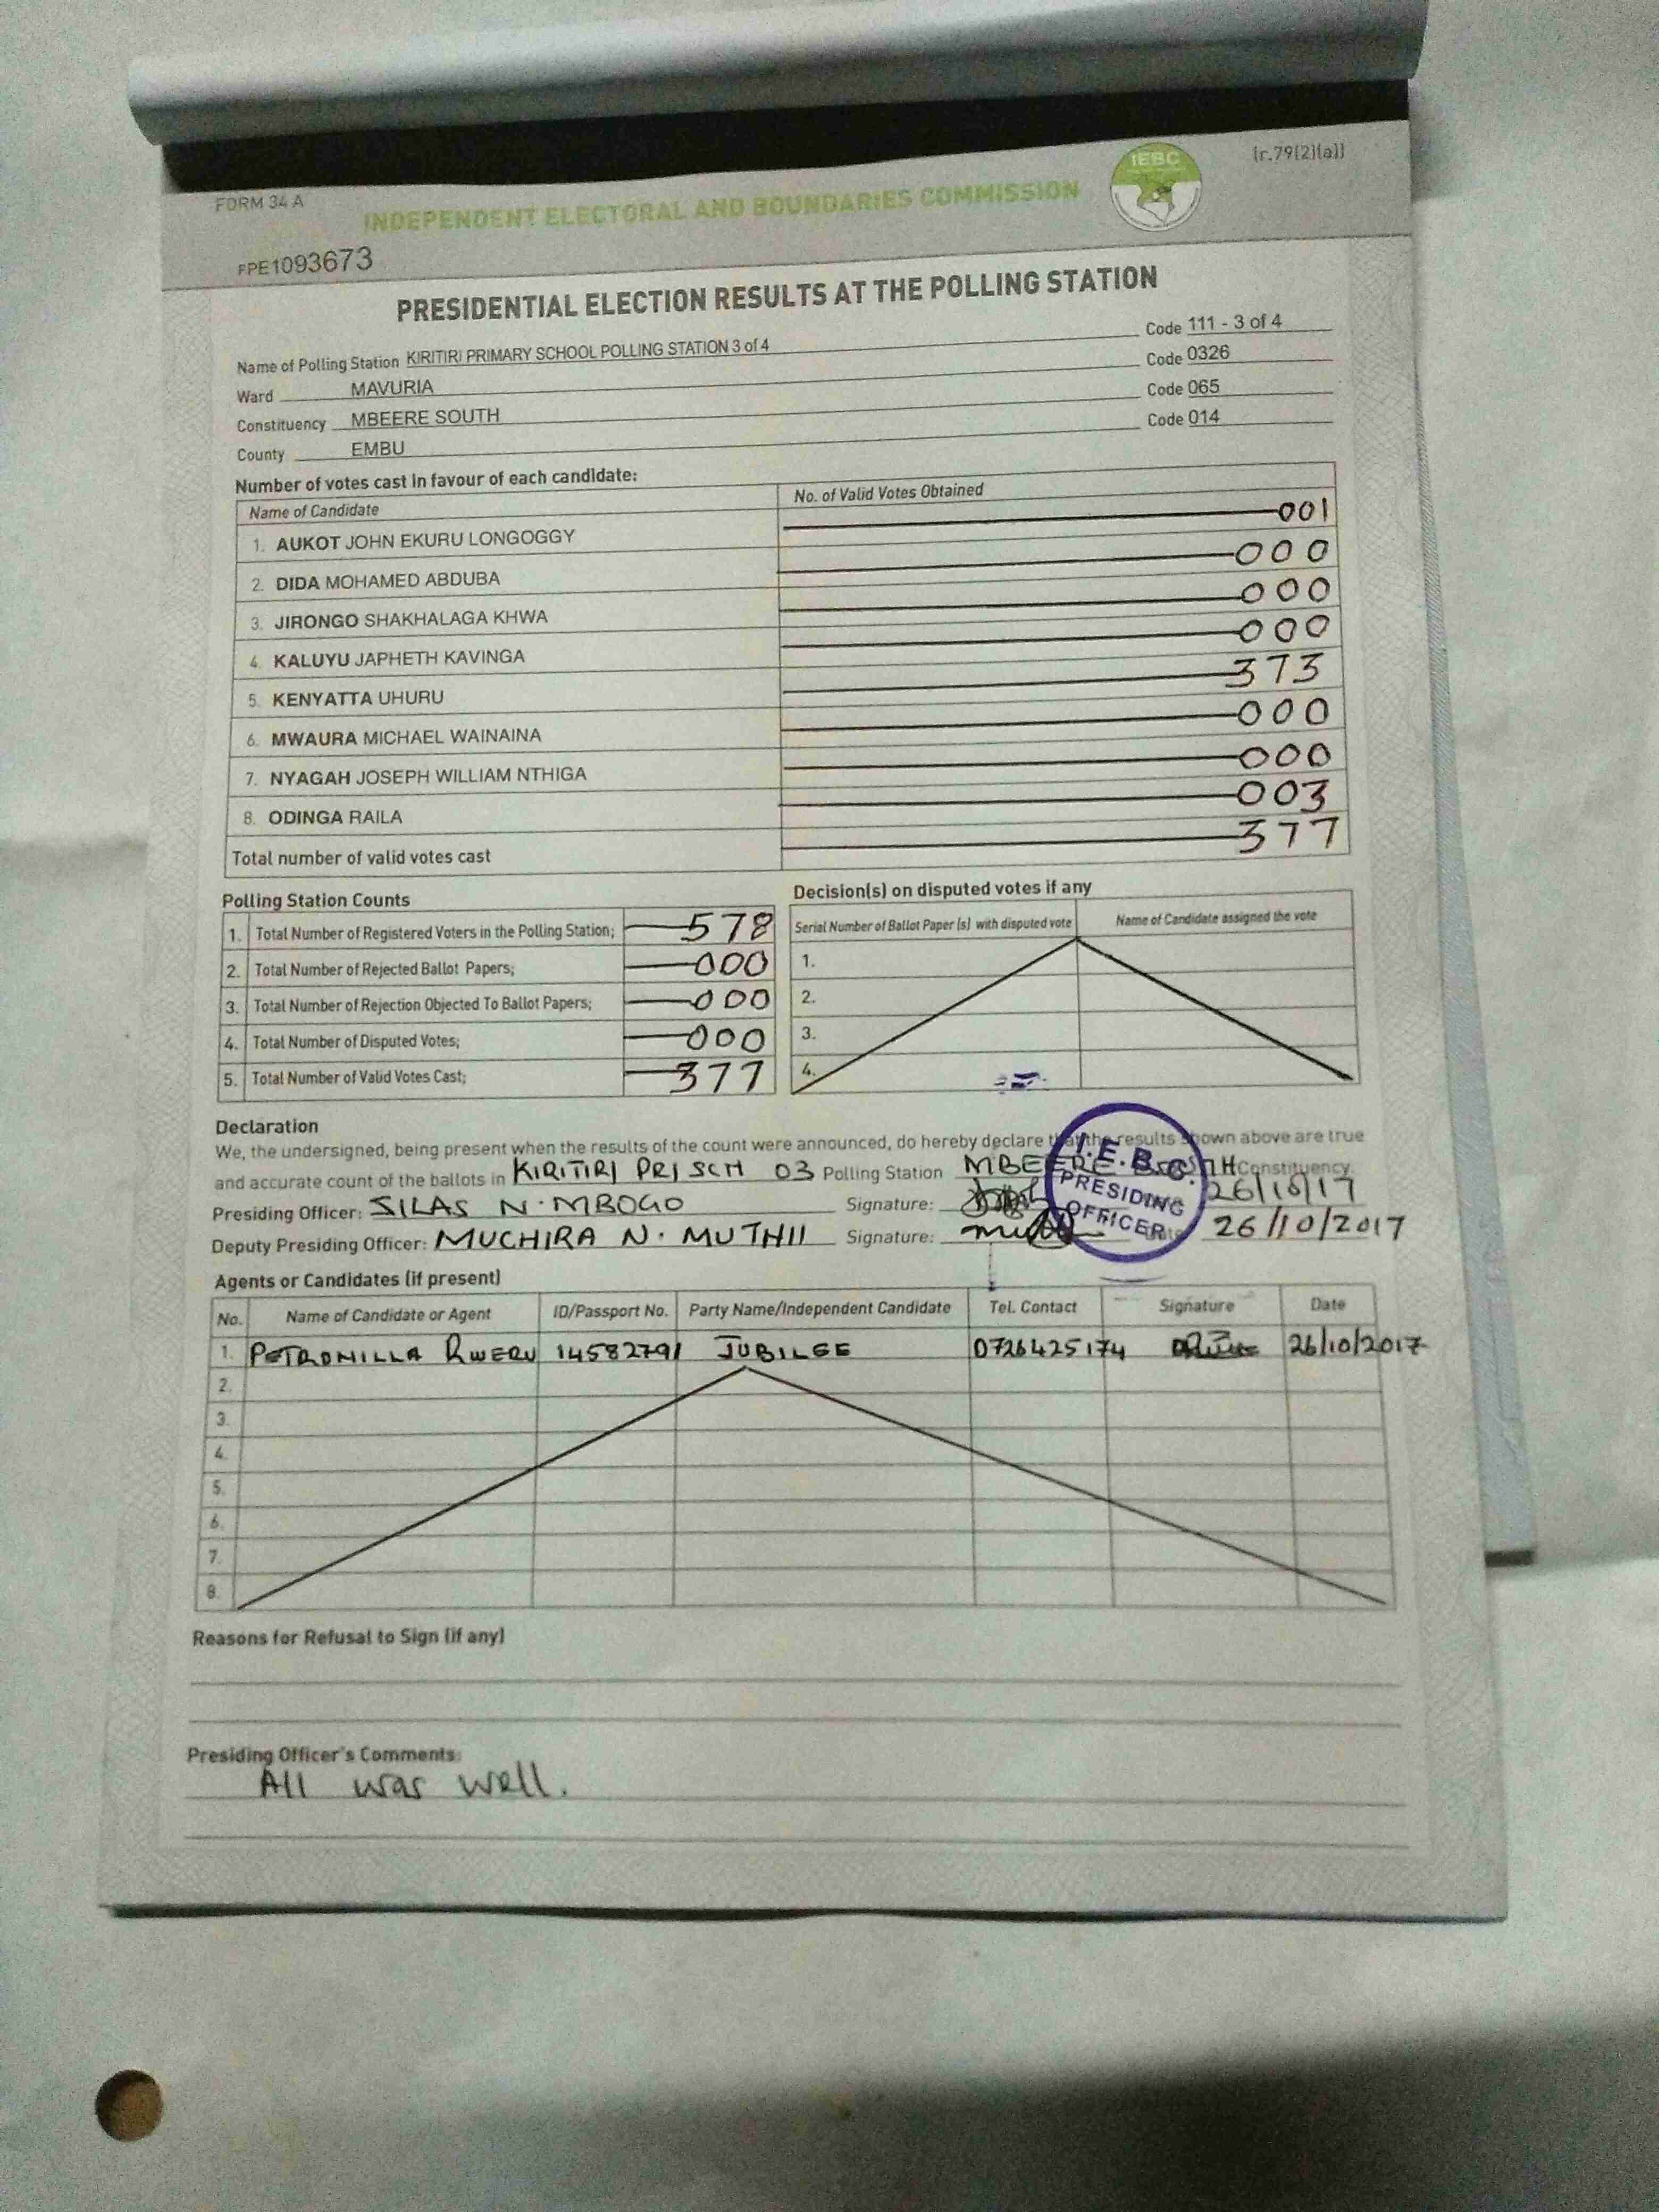 FORM 34 A
(r.79(2)(a))
IEBC
INDEPENDENT ELECTORAL AND BOUNDARIES COMMISSION
FPE1093673
PRESIDENTIAL ELECTION RESULTS AT THE POLLING STATION
Name of Polling Station KIRITIRI PRIMARY SCHOOL POLLING STATION 3 of 4 Code 111 - 3 of 4
Ward MAVURIA Code 0326
Constituency MBEERE SOUTH Code 065
County EMBU Code 014
Number of votes cast in favour of each candidate:
Name of Candidate No. of Valid Votes Obtained
1. AUKOT JOHN EKURU LONGOGGY 001
2. DIDA MOHAMED ABDUBA 000
3. JIRONGO SHAKHALAGA KHWA 000
4. KALUYU JAPHETH KAVINGA 000
5. KENYATTA UHURU 373
6. MWAURA MICHAEL WAINAINA 000
7. NYAGAH JOSEPH WILLIAM NTHIGA 000
8. ODINGA RAILA 003
Total number of valid votes cast 377
Polling Station Counts
1. Total Number of Registered Voters in the Polling Station; 578
2. Total Number of Rejected Ballot Papers; 000
3. Total Number of Rejection Objected To Ballot Papers; 000
4. Total Number of Disputed Votes; 000
5. Total Number of Valid Votes Cast; 377
Decision(s) on disputed votes if any
Serial Number of Ballot Paper (s) with disputed vote Name of Candidate assigned the vote
1.
2.
3.
4.
Declaration
We, the undersigned, being present when the results of the count were announced, do hereby declare that the results shown above are true
and accurate count of the ballots in KIRITIRI PRI SCH 03 Polling Station MBEERE SOUTH Constituency.
Presiding Officer: SILAS N. MBOGO Signature: 26/10/17
Deputy Presiding Officer: MUCHIRA N. MUTHII Signature: 26/10/2017
I.E.B.C.
PRESIDING
OFFICER
Agents or Candidates (if present)
No. Name of Candidate or Agent ID/Passport No. Party Name/Independent Candidate Tel. Contact Signature Date
1. PETRONILLA RWERU 14582791 JUBILEE 0726425174 26/10/2017
2.
3.
4.
5.
6.
7.
8.
Reasons for Refusal to Sign (if any)
Presiding Officer's Comments:
All was well.